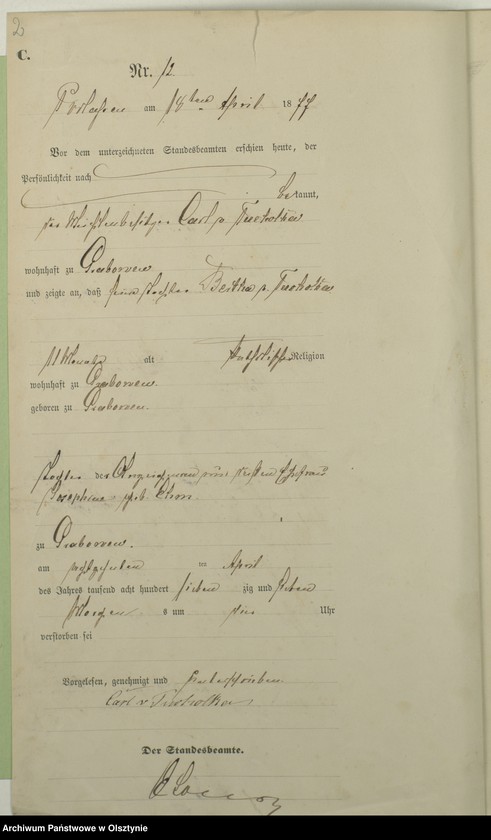 2
C.
Nr. 12
am 18ten April 1877
Vor dem unterzeichneten Standesbeamten erschien heute, der
Persönlichkeit nach
bekannt,
der Mühlenbesitzer Carl v. Tucholka
wohnhaft zu Grabowen
und zeigte an, daß seine Tochter Bertha v. Tucholka
11 Monate alt katholischer Religion
wohnhaft zu Grabowen
geboren zu Grabowen.
Tochter des Angezeigenden und dessen Ehefrau
Josephine geb.
zu Grabowen.
am achtzehnten April
des Jahres tausend acht hundert sieben zig und sieben
Morgens um vier Uhr
verstorben sei
Vorgelesen, genehmigt und unterschrieben
Carl v Tucholka
Der Standesbeamte.
Archiwum Państwowe w Olsztynie